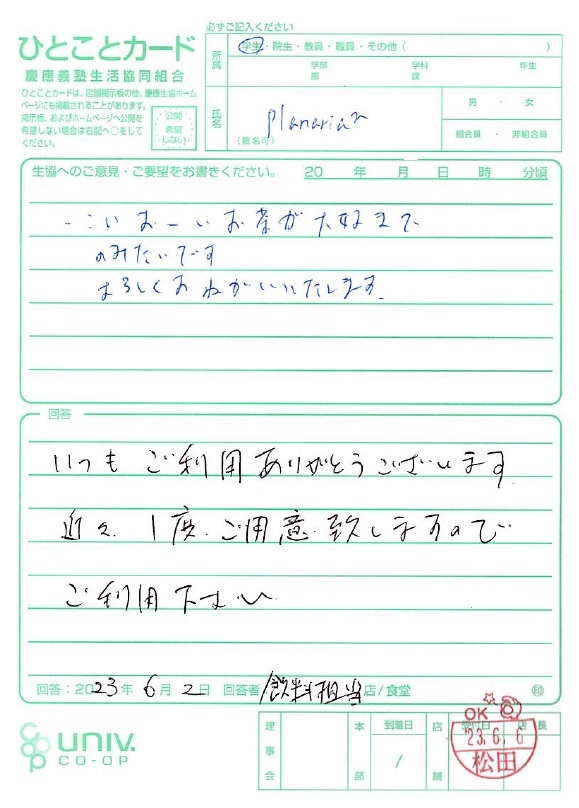 必ずご記入ください
ひとことカード
慶應義塾生活協同組合
ひとことカードは、店舗掲示板の他、慶應生協ホーム
ページにも掲載されることがあります。
掲示板、およびホームページへ公開を
希望しない場合は右記へ○をして
ください。
公開
希望
しない
所属
学生・院生・教員・職員・その他(　　　)
学部 学科 年生
部 課
氏名
(匿名可)
planarian
男・女
組合員・非組合員
生協へのご意見・ご要望をお書きください。 20 年 月 日 時 分頃
こいおーいお茶が大好きで
のみたいです
よろしくおねがいいたします.
回答
いつもご利用ありがとうございます
近々、1度、ご用意致しますので
ご利用下さい
回答：2023年6月2日 回答者 飲料担当 店/食堂 ㊞
co op UNIV.
CO-OP
理事会
本部
到着日
/
店舗
受付日
店長
OK
'23.6.6
松田